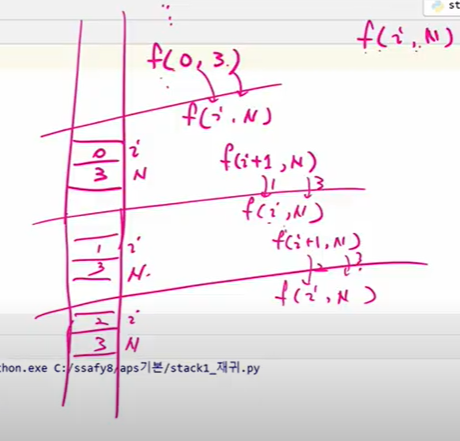 st
f(i, N)
f(0, 3)
f(i, N)
0 i
3 N
f(i+1, N)
1 3
f(i, N)
1 i
3 N
f(i+1, N)
2 3
f(i, N)
2 i
3 N
thon.exe C:/ssafy8/aps기본/stack1_재귀.py